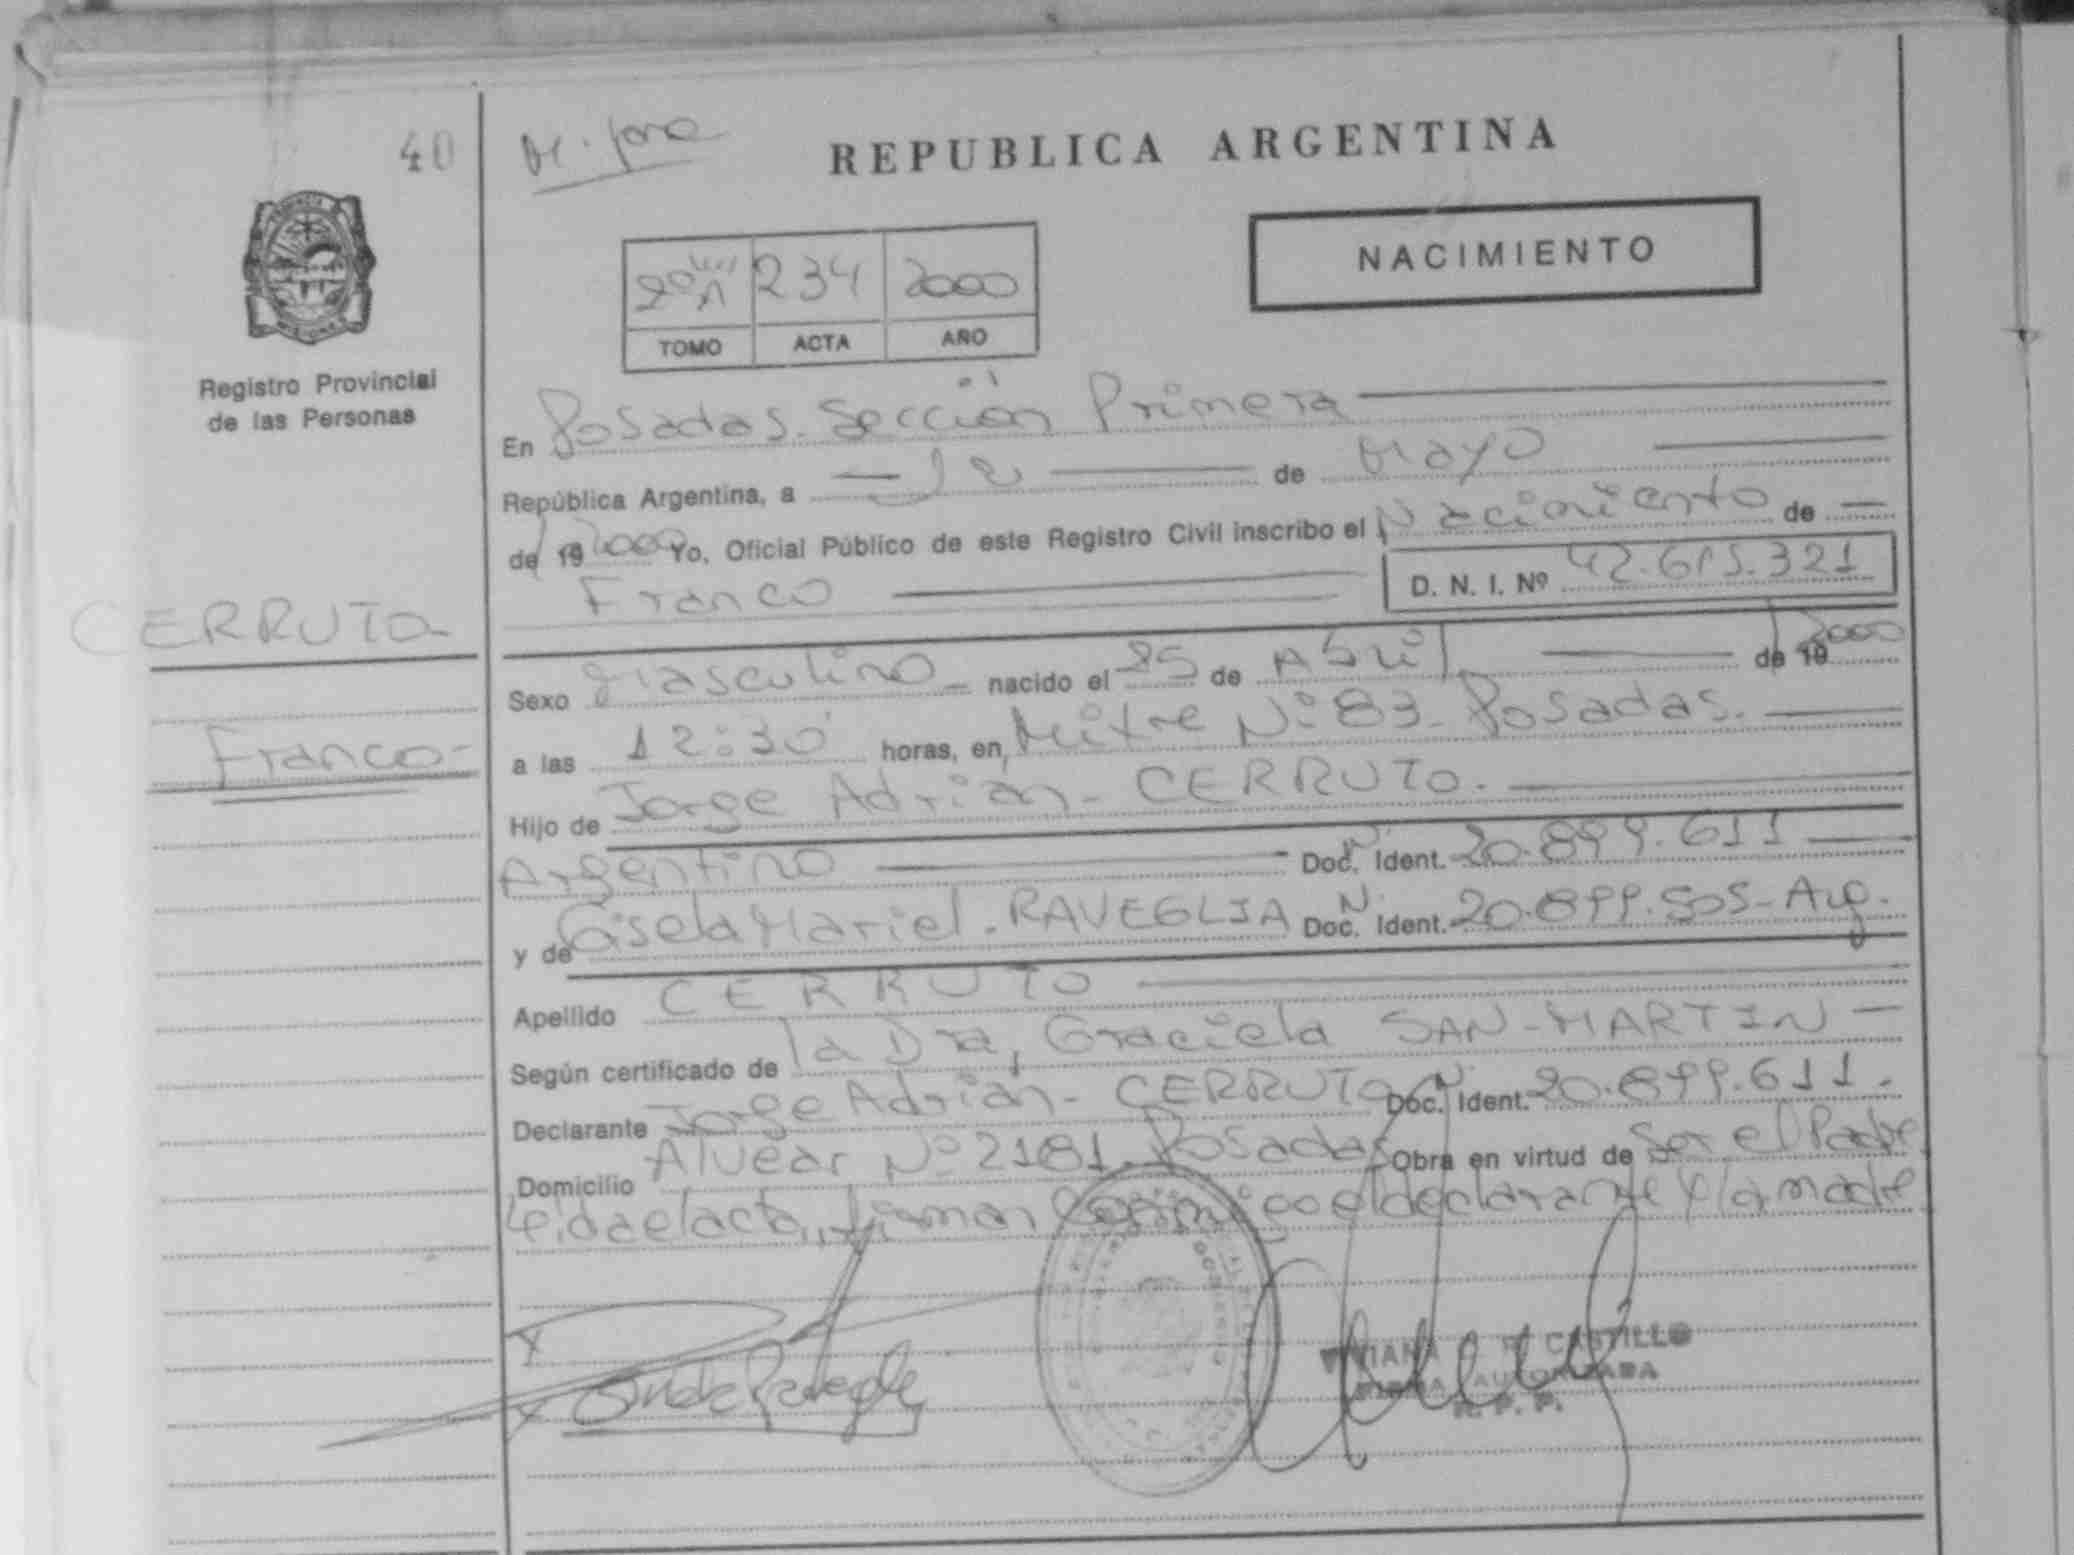 40
REPUBLICA ARGENTINA
NACIMIENTO
234 2000
TOMO ACTA AÑO
Registro Provincial
de las Personas
En Posadas. Sección Primera
República Argentina, a 12 de Mayo
de 19 2000 Yo, Oficial Público de este Registro Civil inscribo el Nacimiento de
Franco D. N. I. Nº 42.615.321
CERRUTO
Sexo Masculino nacido el 25 de Abril de 19 2000
Franco
a las 12:30 horas, en Mitre Nº 83 - Posadas.
Hijo de Jorge Adrián - CERRUTO.
Argentino Doc. Ident. 20.899.611
y de Gisela Mariel. RAVEGLIA Doc. Ident. 20.899.505 - Arg.
Apellido CERRUTO
Según certificado de la Dra, Graciela SAN-MARTIN
Declarante Jorge Adrián - CERRUTO Doc. Ident. 20.899.611.
Domicilio Alvear Nº 2181. Posadas Obra en virtud de Ser el Padre
Leida el acta, firman conmigo el declarante y la madre
CASTILLO
FIRMA AUTORIZADA
R. P. P.